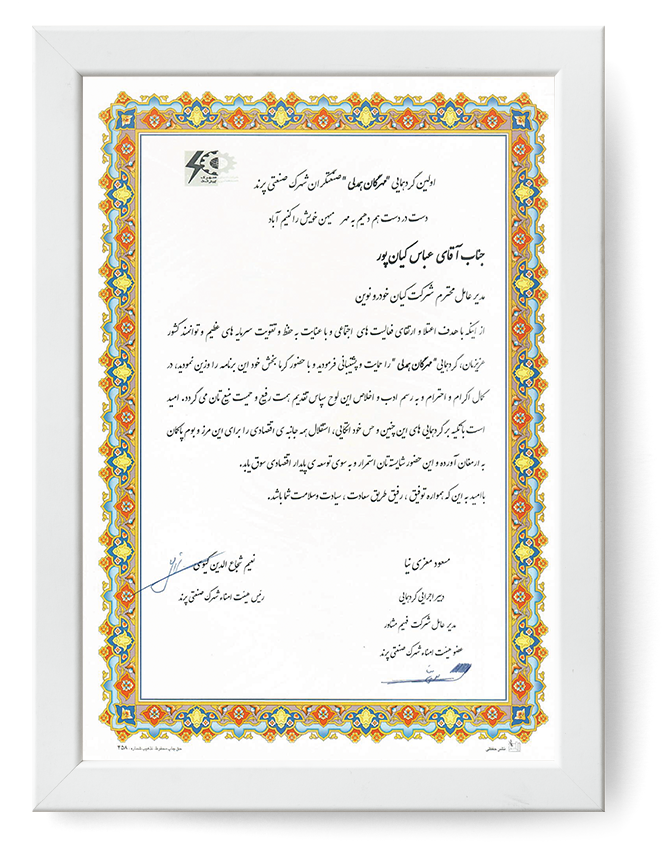 شهرک پرند
اولین گردهمایی "مهرگان همدلی" صنعتگران شهرک صنعتی پرند
دست در دست هم دهیم به مهر میهن خویش را کنیم آباد
جناب آقای عباس کیان پور
مدیر عامل محترم شرکت کیان خودرو نوین
از اینکه با هدف اعتلا و ارتقای فعالیت های اجتماعی و با عنایت به حفظ و تقویت سرمایه های عظیم و توانمند کشور
عزیزمان، گردهمایی "مهرگان همدلی" را حمایت و پشتیبانی فرمودید و با حضور گرما بخش خود این برنامه را وزین نمودید، در
کمال اکرام و احترام و به رسم ادب و اخلاص این لوح سپاس تقدیم همت رفیع و حمیت منیع تان می گردد. امید
است با تکیه بر گردهمایی های این چنین و حس خود اتکایی، استقلال همه جانبه ی اقتصادی را برای این مرز و بوم پاکان
به ارمغان آورده و این حضور شایسته تان استمرار و به سوی توسعه ی پایدار اقتصادی سوق یابد.
با امید به این که همواره توفیق ، رفیق طریق سعادت ، سیادت وسلامت شما باشد.
مسعود معزی نیا
دبیر اجرایی گردهمایی
مدیر عامل شرکت فهیم مشاور
عضو هیئت امناء شهرک صنعتی پرند
نعیم شجاع الدین گیوی
رئیس هیئت امناء شهرک صنعتی پرند
نشر حقانی
حق چاپ محفوظ تذهیب شماره ۲۵۸